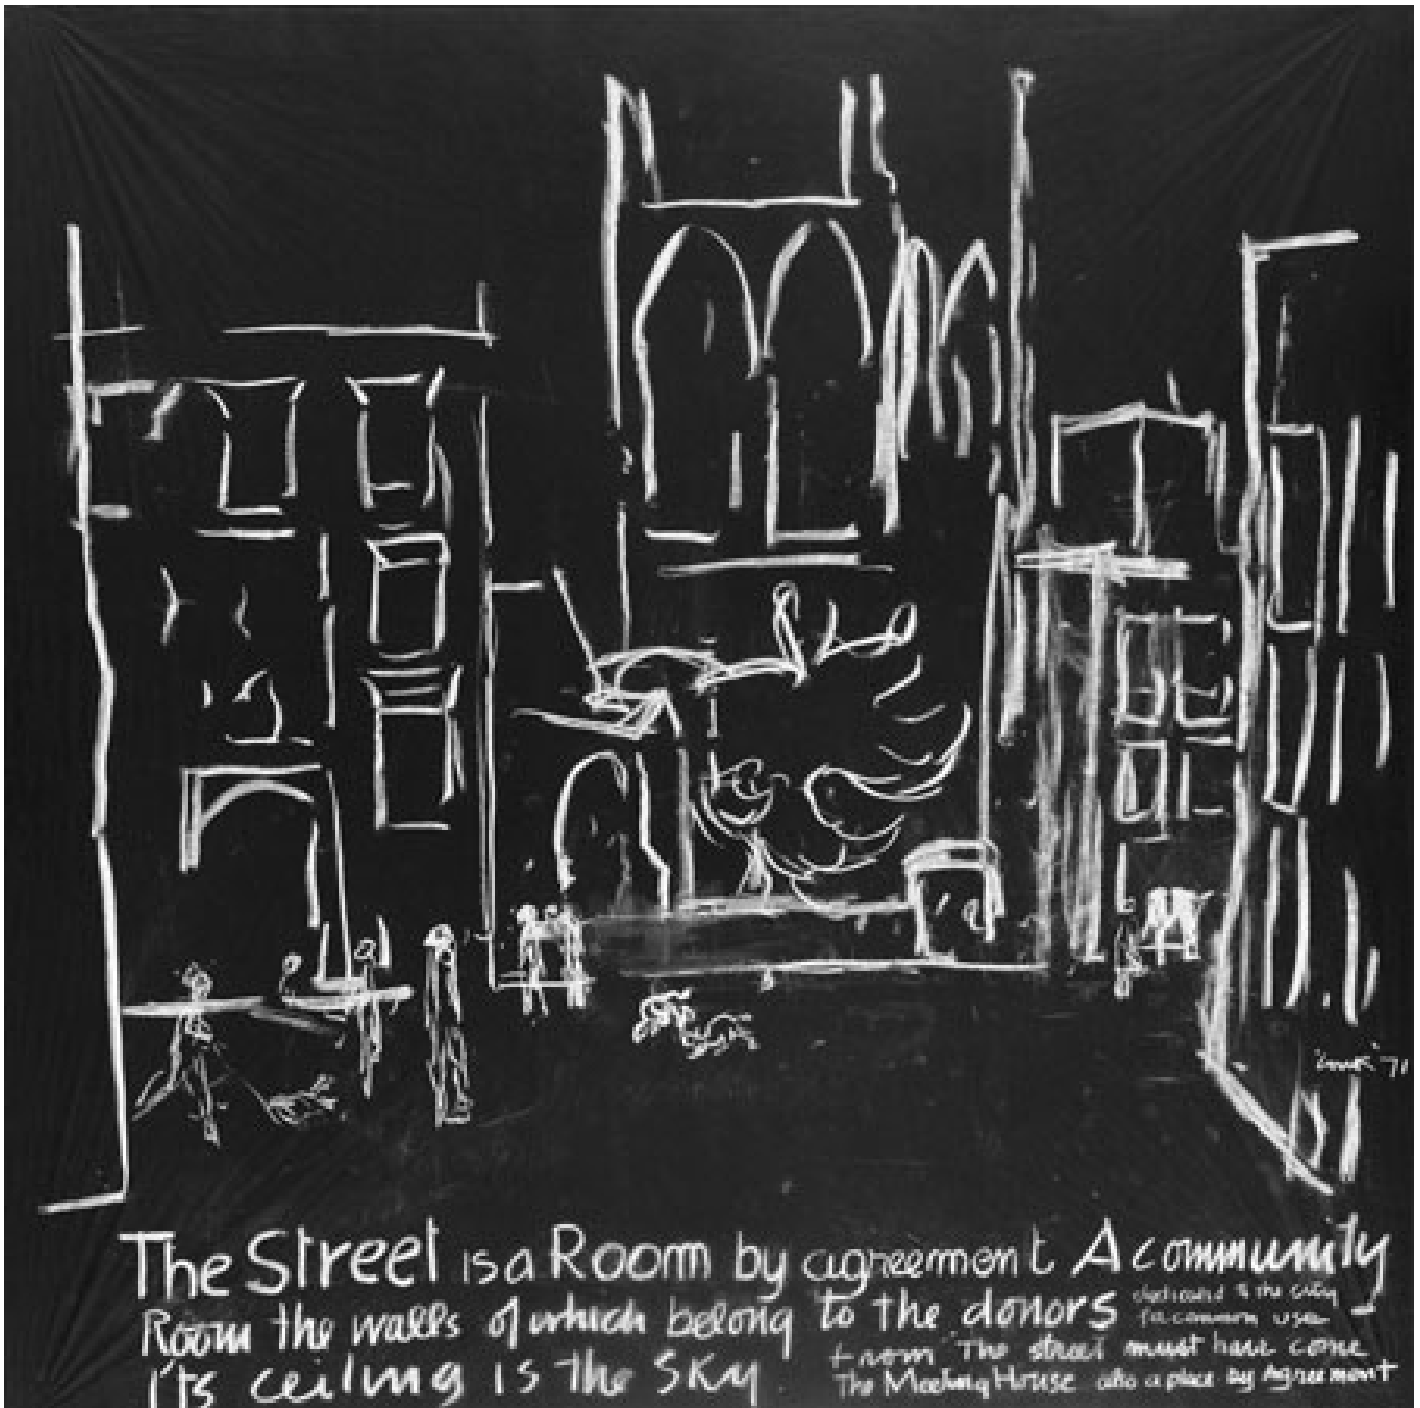 '71
The Street is a Room by agreement A community
Room the walls of which belong to the donors
dedicated to the city
for common use
its ceiling is the sky.
from The street must have come
The Meeting House also a place by Agreement